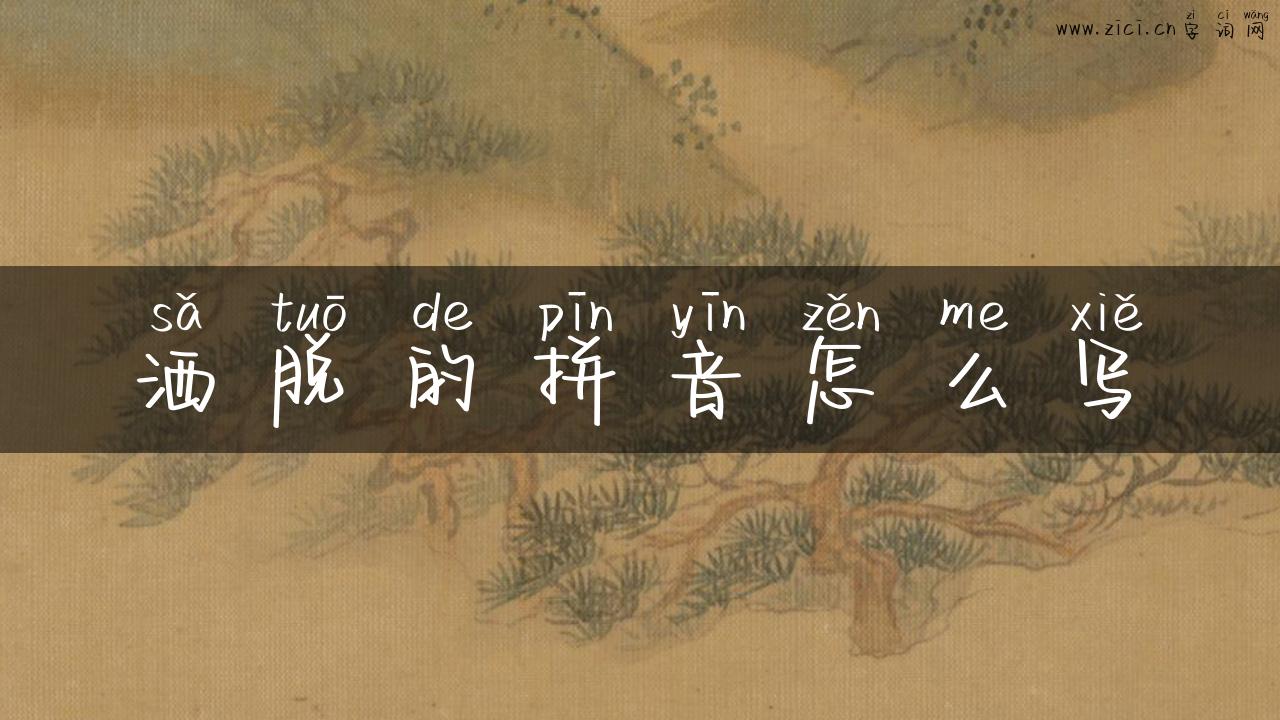 zì cí wǎng
www.zici.cn 字词网
sǎ tuō de pīn yīn zěn me xiě
洒脱的拼音怎么写